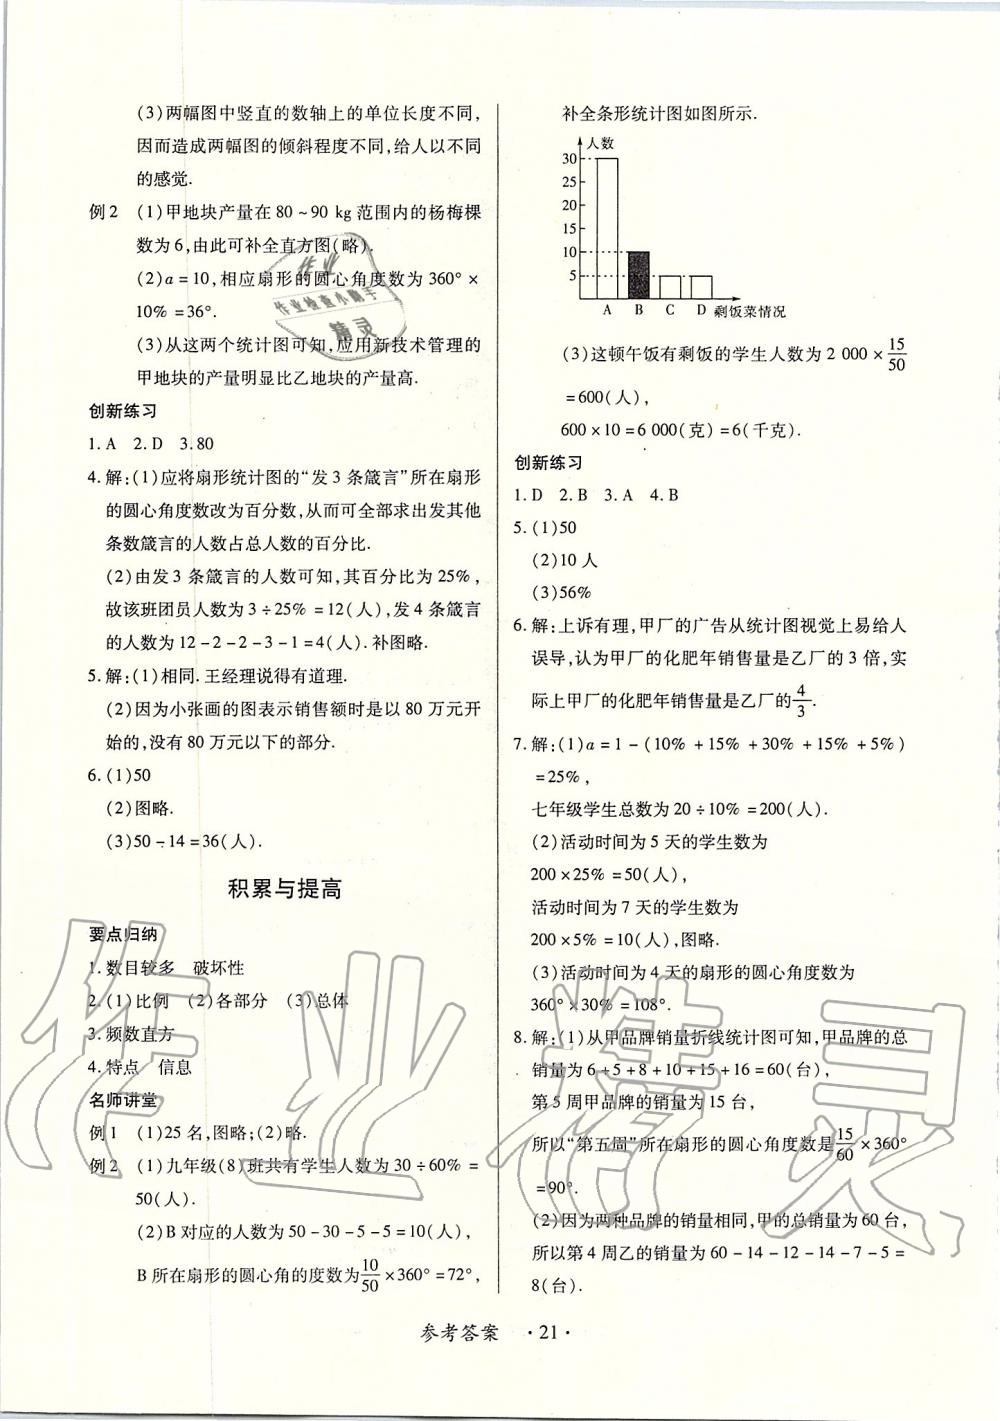 (3)两幅图中竖直的数轴上的单位长度不同,
因而造成两幅图的倾斜程度不同,给人以不同
的感觉.
例2 (1)甲地块产量在80~90 kg范围内的杨梅棵
数为6,由此可补全直方图(略).
(2)a=10,相应扇形的圆心角度数为360°×
10%=36°.
(3)从这两个统计图可知,应用新技术管理的
甲地块的产量明显比乙地块的产量高.
创新练习
1.A 2.D 3.80
4.解:(1)应将扇形统计图的“发3条箴言”所在扇形
的圆心角度数改为百分数,从而可全部求出发其他
条数箴言的人数占总人数的百分比.
(2)由发3条箴言的人数可知,其百分比为25%,
故该班团员人数为3÷25%=12(人),发4条箴言
的人数为12-2-2-3-1=4(人).补图略.
5.解:(1)相同.王经理说得有道理.
(2)因为小张画的图表示销售额时是以80万元开
始的,没有80万元以下的部分.
6.(1)50
(2)图略.
(3)50-14=36(人).
积累与提高
要点归纳
1.数目较多 破坏性
2.(1)比例 (2)各部分 (3)总体
3.频数直方
4.特点 信息
名师讲堂
例1 (1)25名,图略;(2)略.
例2 (1)九年级(8)班共有学生人数为30÷60%=
50(人).
(2)B对应的人数为50-30-5-5=10(人),
B所在扇形的圆心角的度数为10/50×360°=72°,
补全条形统计图如图所示.
人数
30
25
20
15
10
5
A B C D 剩饭菜情况
(3)这顿午饭有剩饭的学生人数为2 000×15/50
=600(人),
600×10=6 000(克)=6(千克).
创新练习
1.D 2.B 3.A 4.B
5.(1)50
(2)10人
(3)56%
6.解:上诉有理,甲厂的广告从统计图视觉上易给人
误导,认为甲厂的化肥年销售量是乙厂的3倍,实
际上甲厂的化肥年销售量是乙厂的4/3.
7.解:(1)a=1-(10%+15%+30%+15%+5%)
=25%,
七年级学生总数为20÷10%=200(人).
(2)活动时间为5天的学生数为
200×25%=50(人),
活动时间为7天的学生数为
200×5%=10(人),图略.
(3)活动时间为4天的扇形的圆心角度数为
360°×30%=108°.
8.解:(1)从甲品牌销量折线统计图可知,甲品牌的总
销量为6+5+8+10+15+16=60(台),
第5周甲品牌的销量为15台,
所以“第五周”所在扇形的圆心角度数是15/60×360°
=90°.
(2)因为两种品牌的销量相同,甲的总销量为60台,
所以第4周乙的销量为60-14-12-14-7-5=
8(台).
参考答案 ·21·
作业
作业检查小助手
精灵
作业精灵